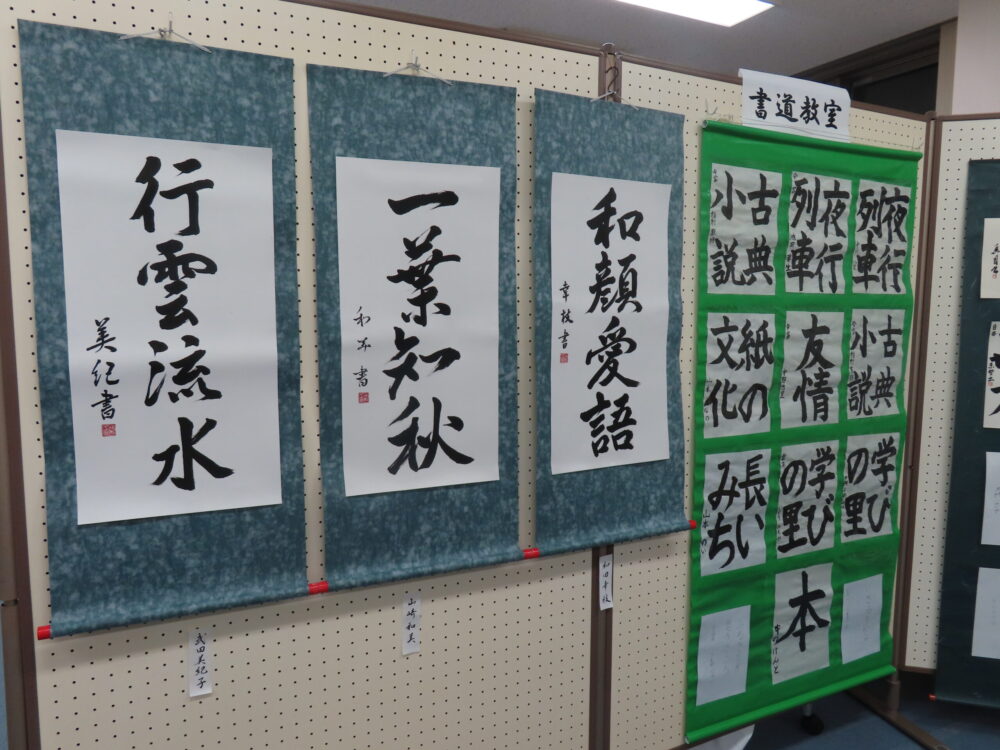 行雲流水
美紀書
武田美紀子
一葉知秋
和美書
山崎和美
和顔愛語
幸枝書
和田幸枝
書道教室
古典
小説
夜行
列車
夜行
列車
紙の
文化
友情
古典
小説
長い
みち
学び
の里
学び
の里
本